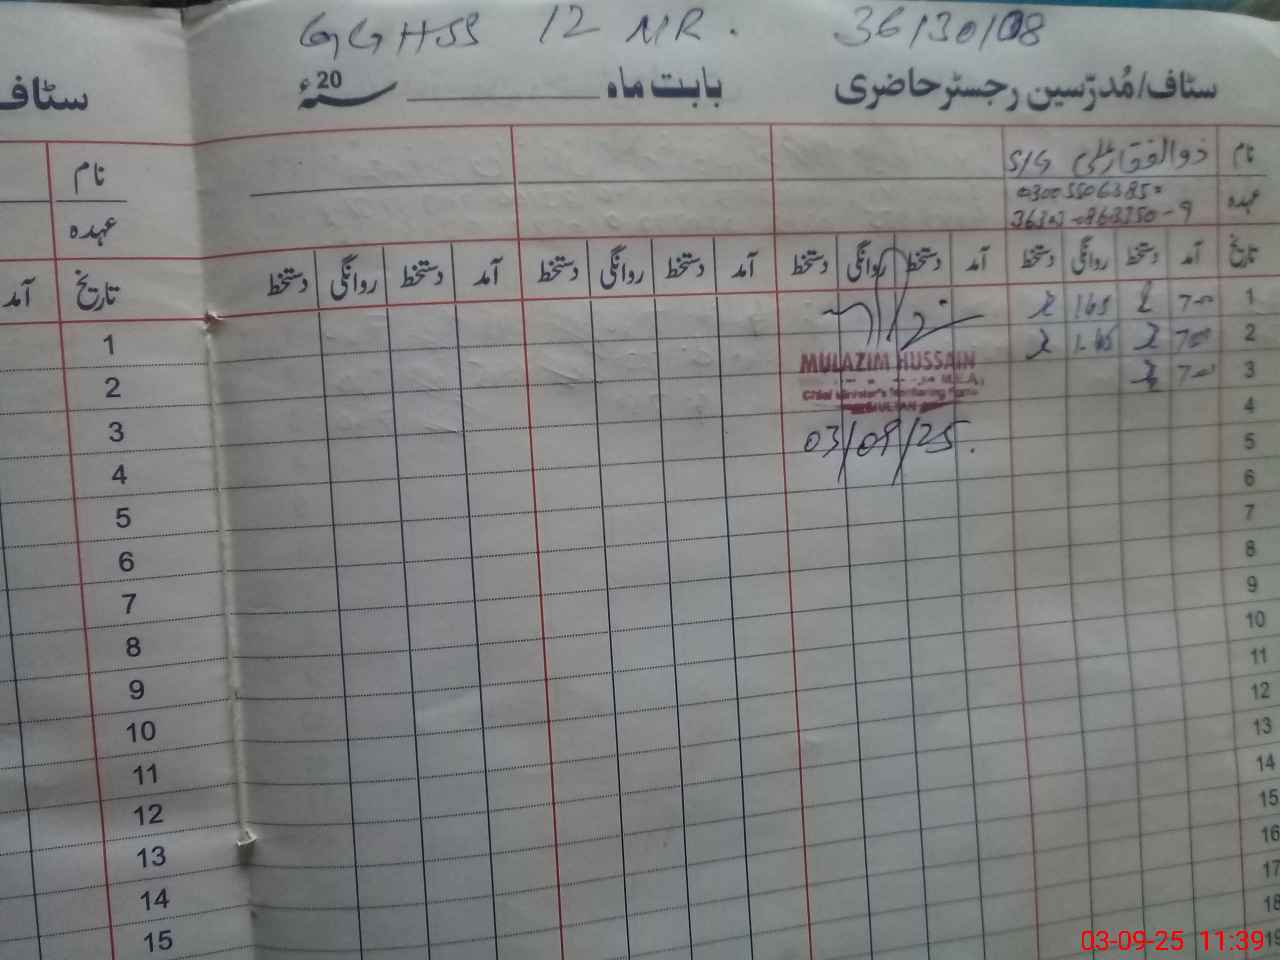 GGHSS 12 MR. 36130108
سٹاف/مُدرّسین رجسٹر حاضری بابت ماہ ــــــــــ سنہ 20ء
سٹاف
نام ذوالفقار علی S/G
عہدہ 03005506385
تاریخ آمد دستخط روانگی دستخط آمد دستخط روانگی دستخط آمد دستخط روانگی دستخط آمد دستخط روانگی دستخط
1 700 165
2 700 1.45
3 700
4
5
6
7
8
9
10
11
12
13
14
15
16
17
18
19
MULAZIM HUSSAIN
M.E.A,
Chief Minister's Monitoring Force
MULTAN
03/09/25.
نام
عہدہ
تاریخ آمد
1
2
3
4
5
6
7
8
9
10
11
12
13
14
15
03-09-25 11:39